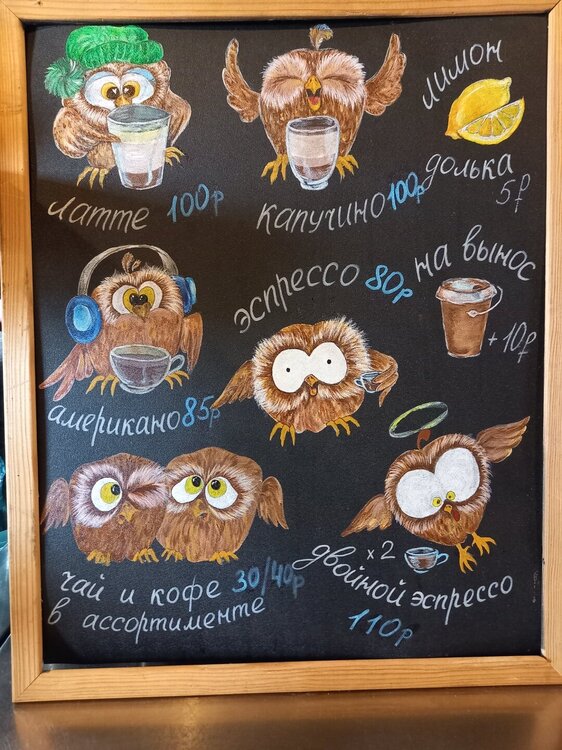 лимон
долька
5₽
латте 100р
капучино 100р
эспрессо 80р
на вынос
+10₽
американо 85р
чай и кофе 30/40р
в ассортименте
x2
двойной эспрессо
110р